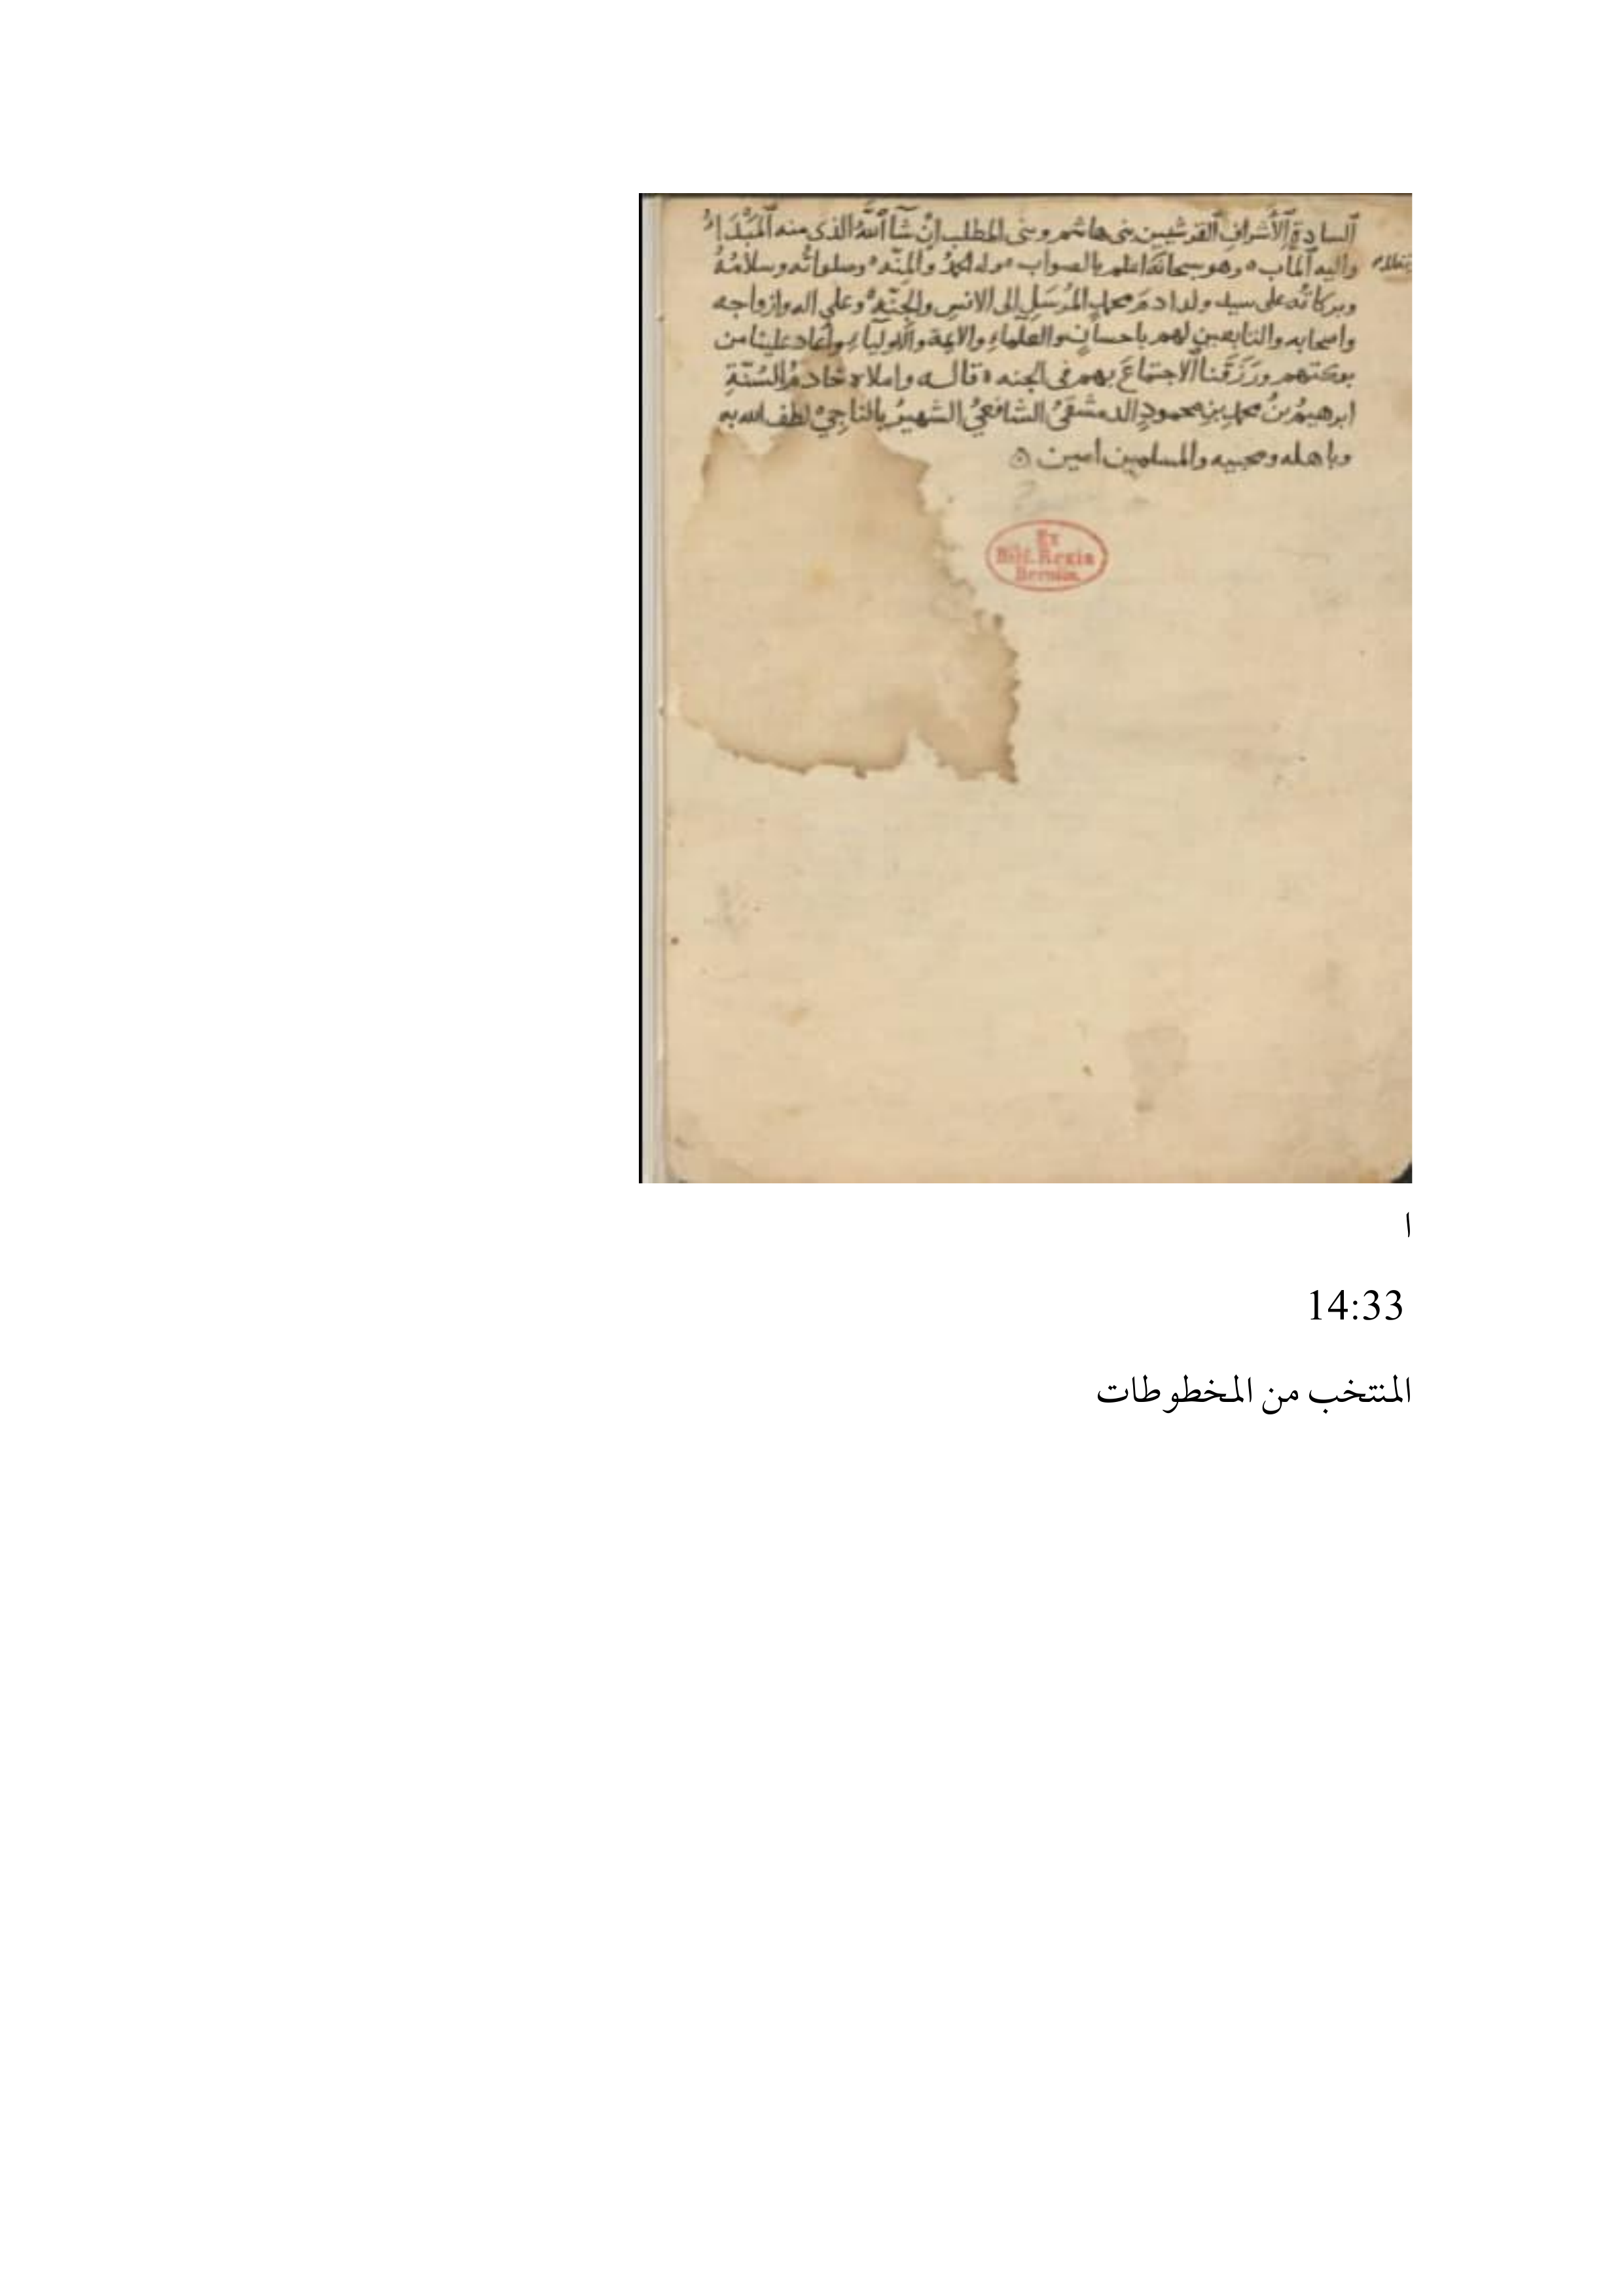 السادة الأشراف القرشيين بني هاشم وبني المطلب إن شآ الله الذى منه المبدأ
واليه المآب وهو سبحانه اعلم بالصواب وله الحمدُ والمنّه وصلواتُه وسلامُهُ
وبركاتُه على سيد ولد ادمَ محمدٍ المُرسَلِ إلى الانسِ والجِنّه وعلى اله وازواجه
واصحابه والتابعين لهم باحسانٍ والعلماءِ والائمة والأوليآءِ وأعاد علينا من
بركتهم ورَزَقَنا الاجتماعَ بهم في الجنه قاله واملاه خادمُ السُنّةِ
ابرهيمُ بنُ محمدِ بنِ محمودٍ الدمشقيُ الشافعيُ الشهيرُ بالناجيْ لطف الله به
وباهله ومحبيه والمسلمين امين
Ex
Bibl. Regia
Berolin.
ا
14:33
المنتخب من المخطوطات